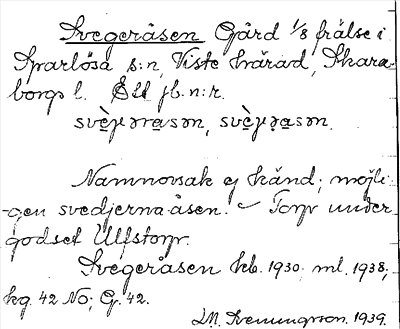 Svegeråsen Gård 1/8 frälse i
Sparlösa s:n, Viste härad, Skara-
borgs l. Ett jb.n:r.
Namnorsak ej känd; möjli-
gen svedjerna-åsen. Torp under
godset Ulfstorp.
Svegeråsen hb. 1930; ml. 1938;
kg. 42 No; G. 42.
1939.